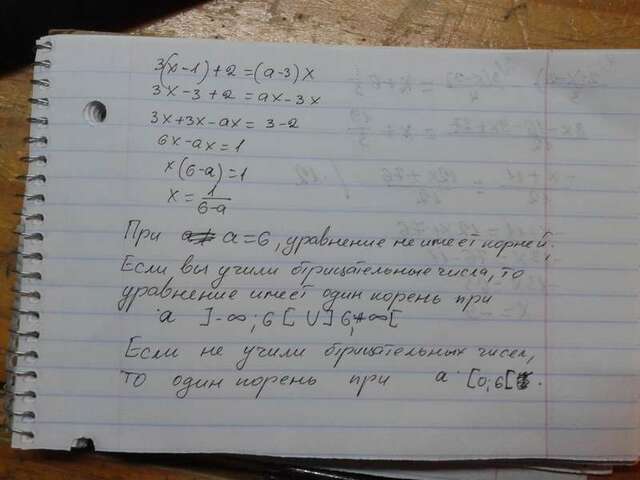 3(x-1)+2=(a-3)x
3x-3+2=ax-3x
3x+3x-ax=3-2
6x-ax=1
x(6-a)=1
x=1/6-a
При a=6, уравнение не имеет корней.
Если вы учили отрицательные числа, то
уравнение имеет один корень при
a ]-∞;6[ U ]6;+∞[
Если не учили отрицательных чисел,
то один корень при a [0;6[.